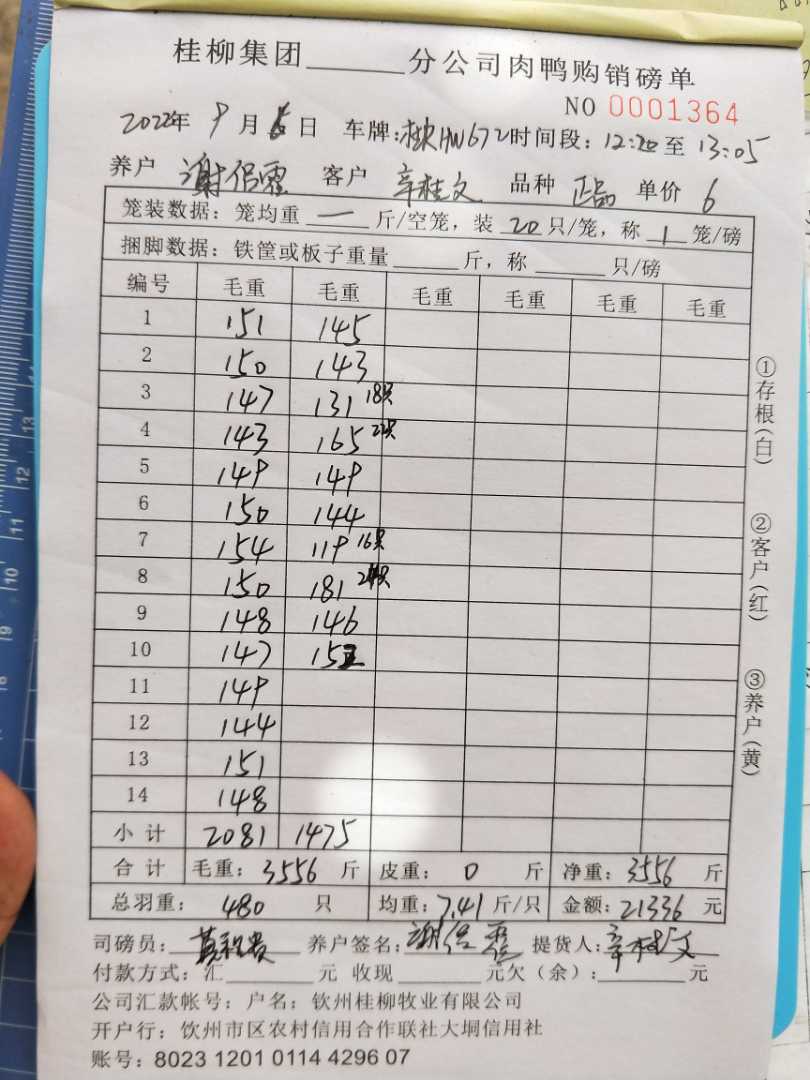 桂柳集团______分公司肉鸭购销磅单
NO 0001364
2022年 9月 日 车牌:HW672 时间段: 12:20 至 13:05
养户 谢 客户 辛桂文 品种 正品 单价 6
笼装数据: 笼均重 一 斤/空笼, 装 20 只/笼, 称 1 笼/磅
捆脚数据: 铁筐或板子重量______斤, 称______只/磅
编号 毛重 毛重 毛重 毛重 毛重 毛重
1 151 145
2 150 143
3 147 131 18只
4 143 165 22只
5 149 149
6 150 144
7 154 119 16只
8 150 181 24只
9 148 146
10 147 152
11 149
12 144
13 151
14 148
小计 2081 1475
合计 毛重: 3556 斤 皮重: 0 斤 净重: 3556 斤
总羽重: 480 只 均重: 7.41 斤/只 金额: 21336 元
司磅员: 养户签名: 谢 提货人: 辛桂文
付款方式: 汇______元 收现______元欠(余):______元
公司汇款帐号: 户名: 钦州桂柳牧业有限公司
开户行: 钦州市区农村信用合作联社大垌信用社
账号: 8023 1201 0114 4296 07
①存根(白)
②客户(红)
③养户(黄)